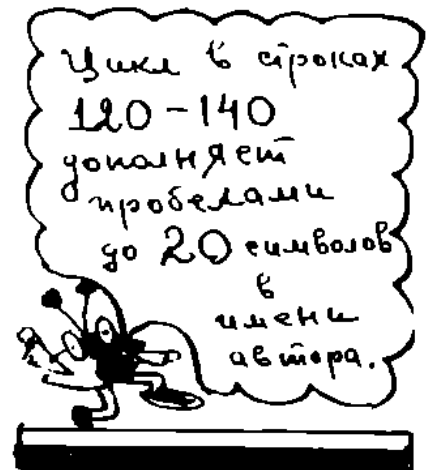 Цикл в строках
120-140
дополняет
пробелами
до 20 символов
в
имени
автора.